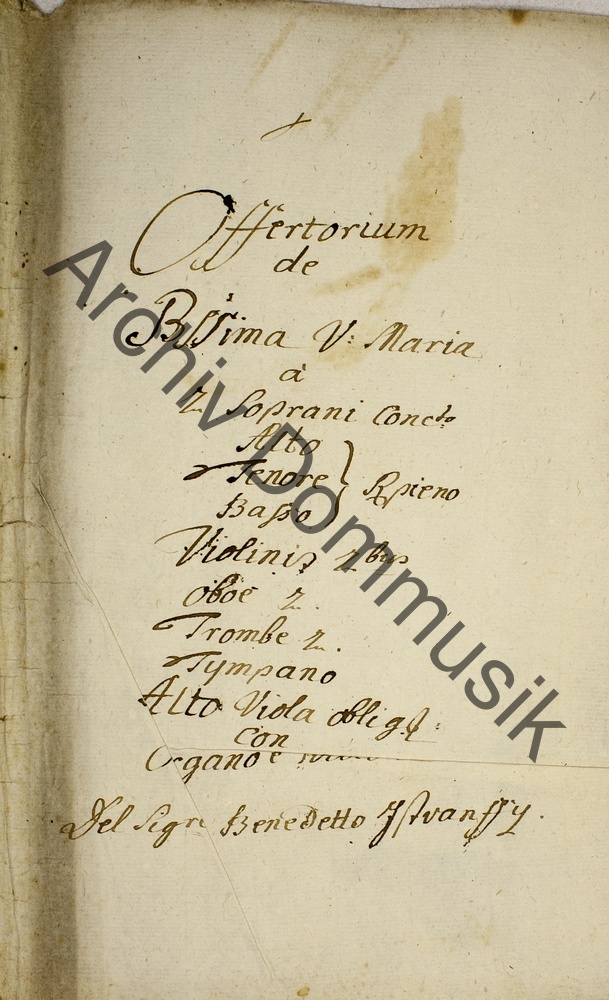 Offertorium
de
Bssima V: Maria
à
2 Soprani Concto
Alto
Tenore } Rpieno
Basso
Violinis 2bus
Oboe 2.
Trombe 2.
Tympano
Alto Viola oblig:
con
Organo e
Del Sigre Benedetto Istvanffy.
Archiv Dommusik